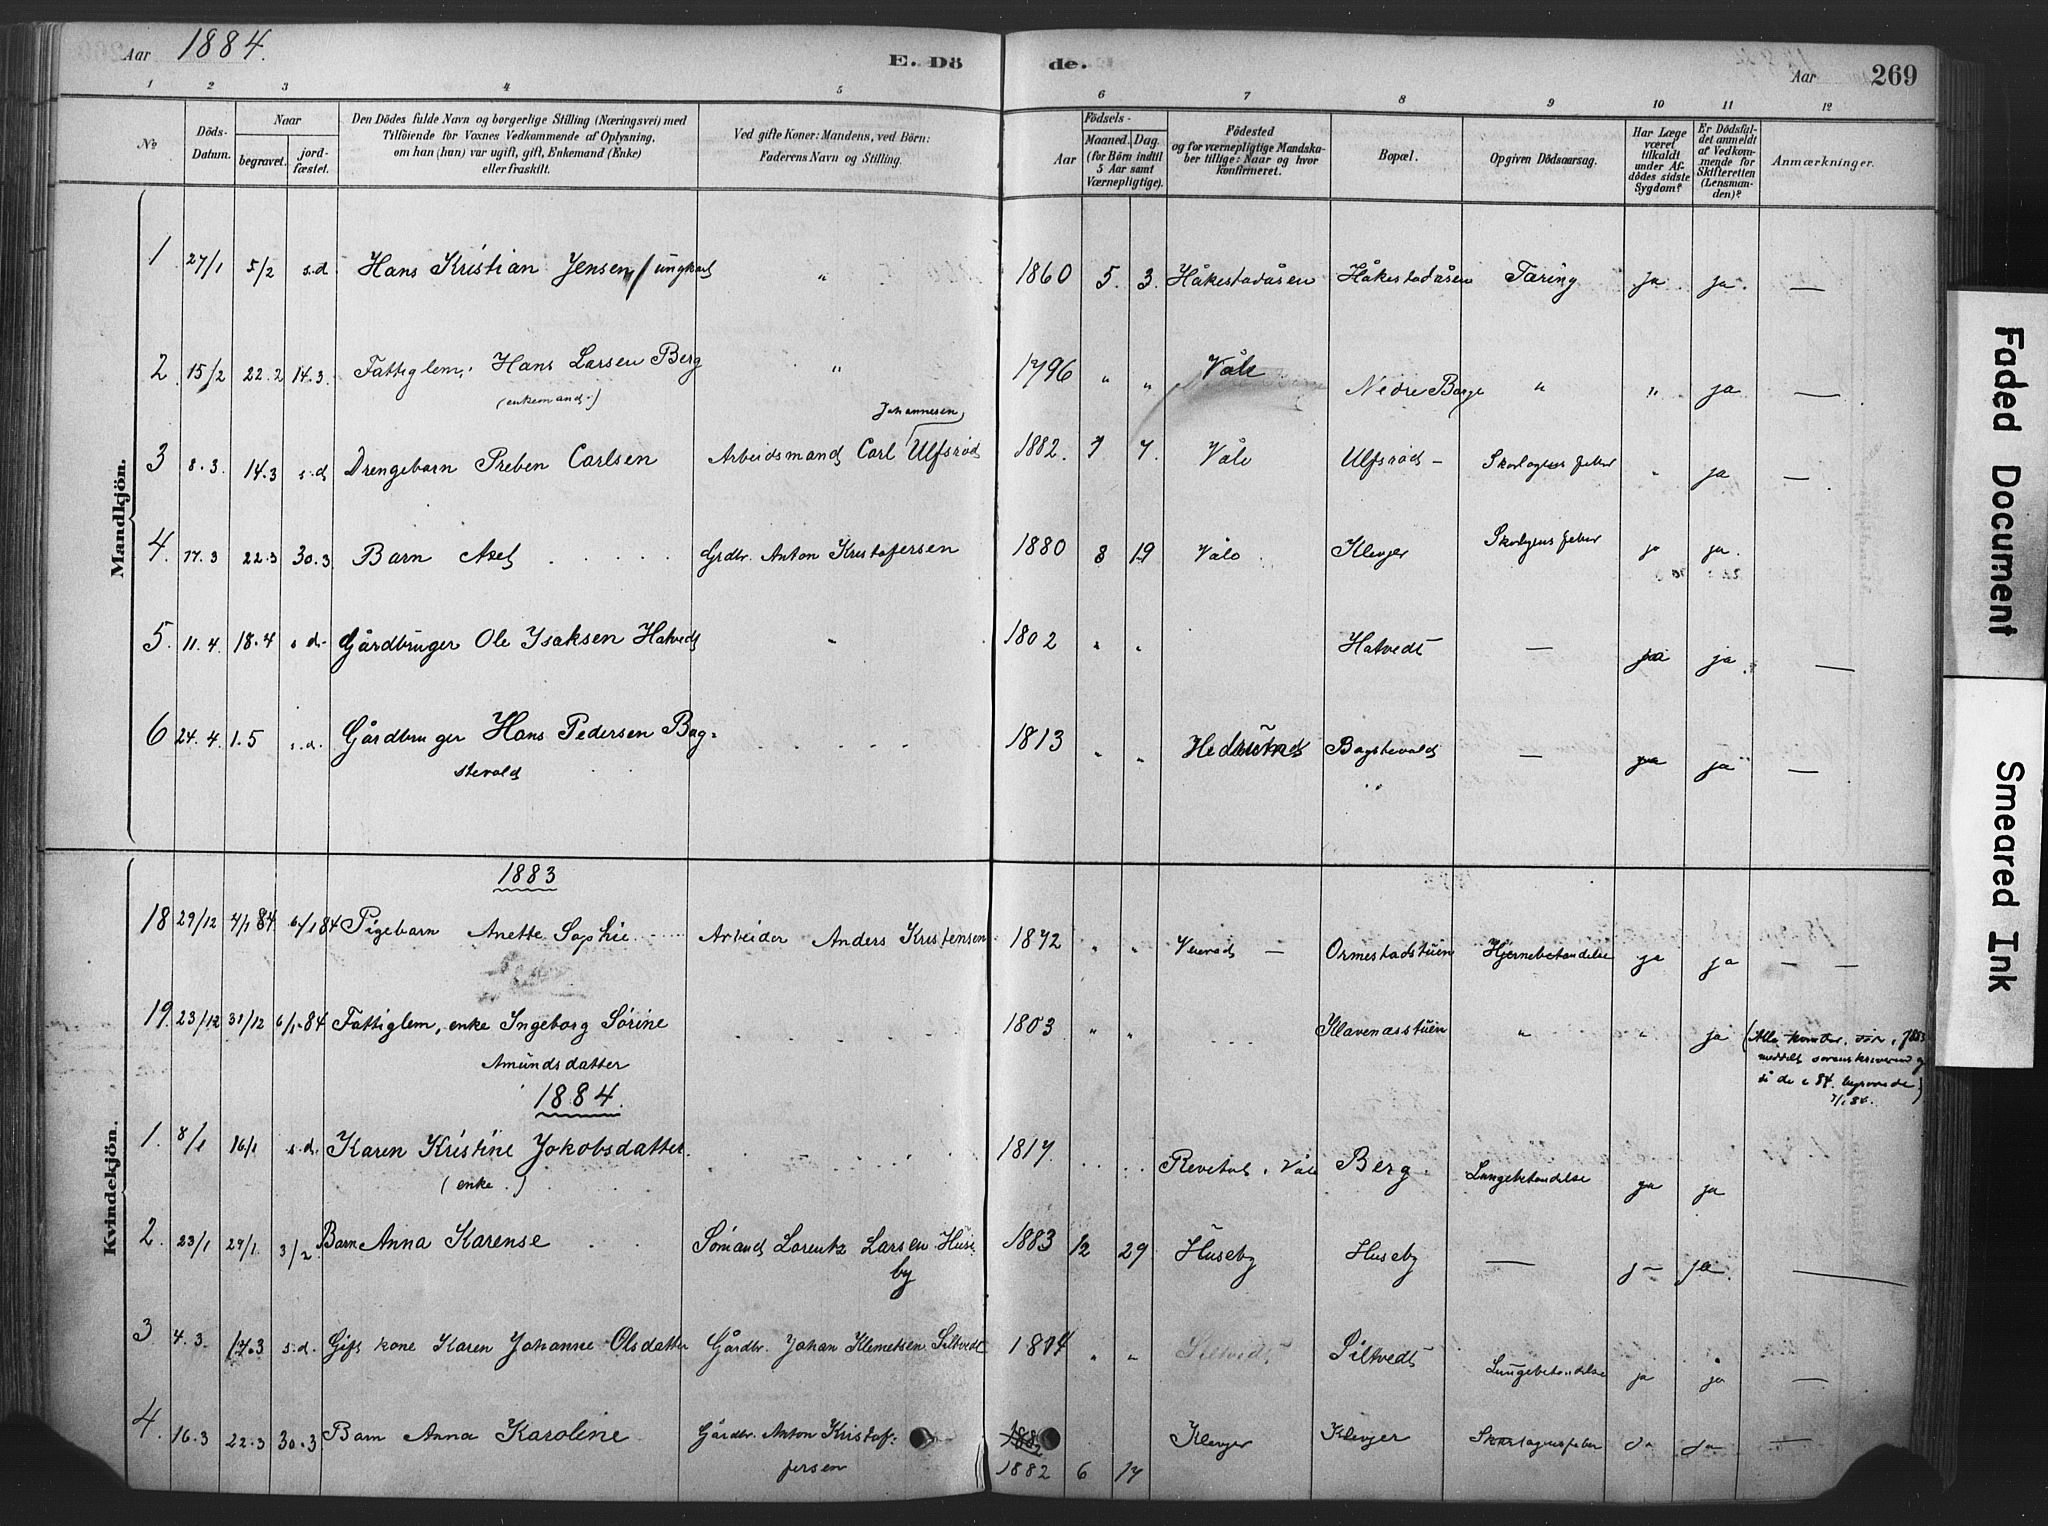 Aar 1884. E. Dö de. Aar 269
1 2 3 4 5 6 7 8 9 10 11 12
№ Döds-Datum. Naar begravet. jordfæstet. Den Dödes fulde Navn og borgerlige Stilling (Næringsvei) med Tilföiende for Voxnes Vedkommende af Oplysning, om han (hun) var ugift, gift, Enkemand (Enke) eller fraskilt. Ved gifte Koner: Mandens, ved Börn: Faderens Navn og Stilling. Aar Födsels- Maaned. Dag. (for Börn indtil 5 Aar samt Værnepligtige). Födested og for værnepligtige Mandskaber tillige: Naar og hvor konfirmeret. Bopæl. Opgiven Dödsaarsag. Har Læge været tilkaldt under Afdödes sidste Sygdom? Er Dödsfaldet anmeldt af Vedkommende for Skifteretten (Lensmanden)? Anmærkninger.
Mandkjön.
1 27/1 5/2 s.d. Hans Kristian Jensen, ungkarl " 1860 5. 3. Håkestadåsen Håkestadåsen Tæring ja ja. —
2 15/2 22.2 14.3. Fattiglem, Hans Larsen Berg " 1796 " " Våle Nedre Barge " " ja —
(enkemand.)
Johannesen
3 8.3. 14.3 s.d Drengebarn Preben Carlsen Arbeidsmand Carl Ulfsrød 1882. 7 7. Våle Ulfsrød - Skarlagensfeber " ja —
4. 17.3 22.3 30.3 Barn Axel . . . . Grdbr. Anton Kristofersen 1880 8 19 Våle Klevjer ja ja.
5. 11.4. 18.4 s.d. Gårdbruger Ole Isaksen Hatvedt " 1802 " " Hatvedt — ja ja —
6 24.4. 1.5 s.d. Gårdbruger Hans Pedersen Bag= 1813 " " Bagstevold — ja ja —
stevold
Kvindekjön.
1883
18 29/12 4/1 84 6/1 84 Pigebarn Anette Sophie Arbeider Anders Kristensen 1872 " " — Ormestadstuen Hjernebetændelse ja ja — —
19. 23/12 31/12 6/1-84 Fattiglem, enke Ingeborg Sørine 1803 " " . . . Klavenæsstuen " " ja
Amundsdatter
1884.
1. 8/1 16/1 s.d. Karen Kristine Jakobsdatter 1817. Revetal, Våle Berg. Lungebetændelse ja ja
(enke.)
2. 23/1 29/1. 3/2. Barn Anna Karense Sømand Lorentz Larsen Huse 1883 12 29 Huseby Huseby — ja —
by
3 4.3. 17.3 s.d. Gift kone Karen Johanne Olsdatter Gårdbr. Johan Klemetsen Siltvedt 1814 " " Siltvedt Siltvedt Lungebetændelse ja ja —
4. 16.3 22.3 30.3 Barn Anna Karoline Gårdbr. Anton Kristof= 1882 Klevjer Klevjer Skarlagensfeber Ja Ja —
fersen 1882 6 17
Faded Document
Smeared Ink